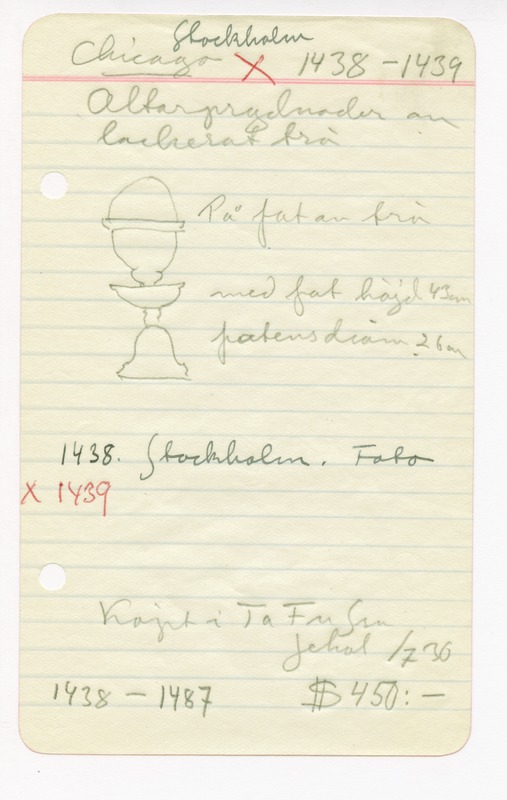 Stockholm
Chicago X 1438-1439
Altarprydnader av
lackerat trä
På fat av trä
med fat höjd 43cm
patens diam 26cm
1438. Stockholm. Foto
X 1439
Köpt i Ta Fu Ssu
Jehol /7 30
1438 - 1487 $450:-